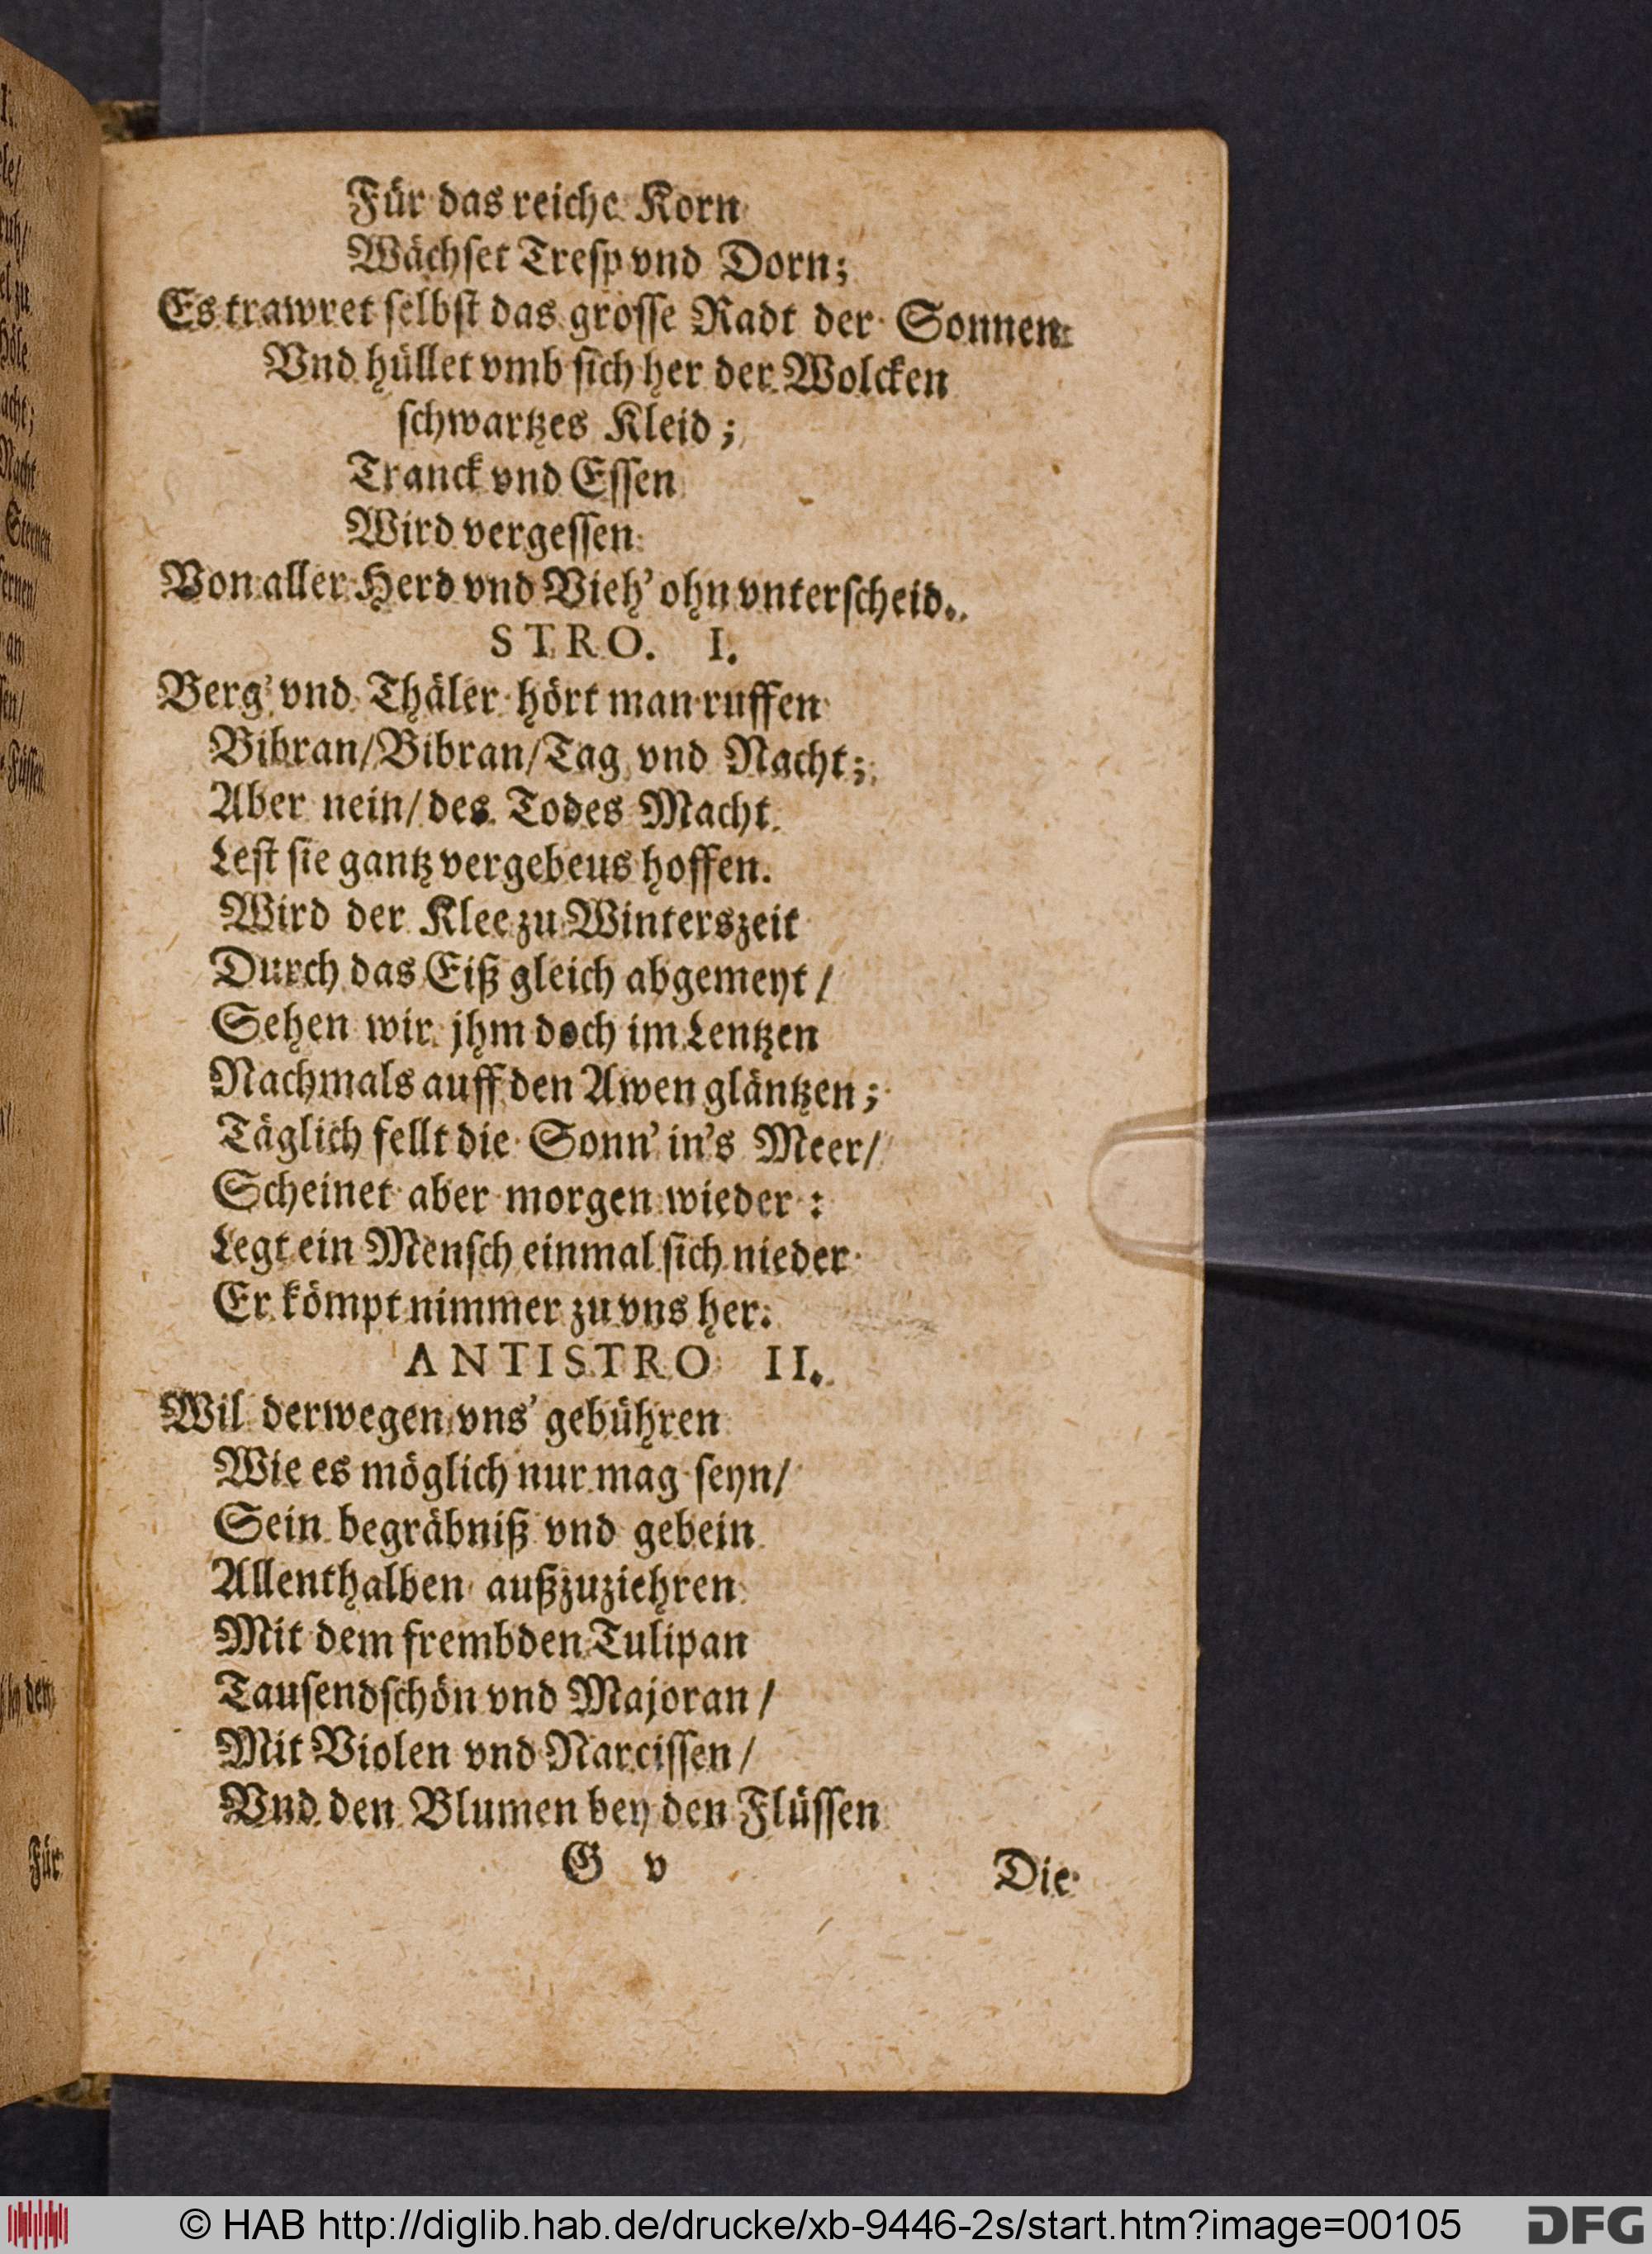 Für das reiche Korn
Wächſet Treſp vnd Dorn;
Es trawret ſelbſt das groſſe Radt der Sonnen
Vnd hüllet vmb ſich her der Wolcken
ſchwartzes Kleid;
Tranck vnd Eſſen
Wird vergeſſen
Von aller Herd vnd Vieh' ohn vnterſcheid.
STRO. I.
Berg' vnd Thäler hört man ruffen
Bibran/Bibran/Tag vnd Nacht;
Aber nein/ des Todes Macht
Leſt ſie gantz vergebeus hoffen.
Wird der Klee zu Winterszeit
Durch das Eiß gleich abgemeyt/
Sehen wir jhm doch im Lentzen
Nachmals auff den Awen gläntzen;
Täglich fellt die Sonn' in's Meer/
Scheinet aber morgen wieder:
Legt ein Menſch einmal ſich nieder
Er kömpt nimmer zu vns her.
ANTISTRO II.
Wil derwegen vns' gebühren
Wie es möglich nur mag ſeyn/
Sein begräbniß vnd gebein
Allenthalben außzuziehren
Mit dem frembden Tulipan
Tauſendſchön vnd Majoran/
Mit Violen vnd Narciſſen/
Vnd den Blumen bey den Flüſſen
G v
Die
Für
© HAB http://diglib.hab.de/drucke/xb-9446-2s/start.htm?image=00105
DFG